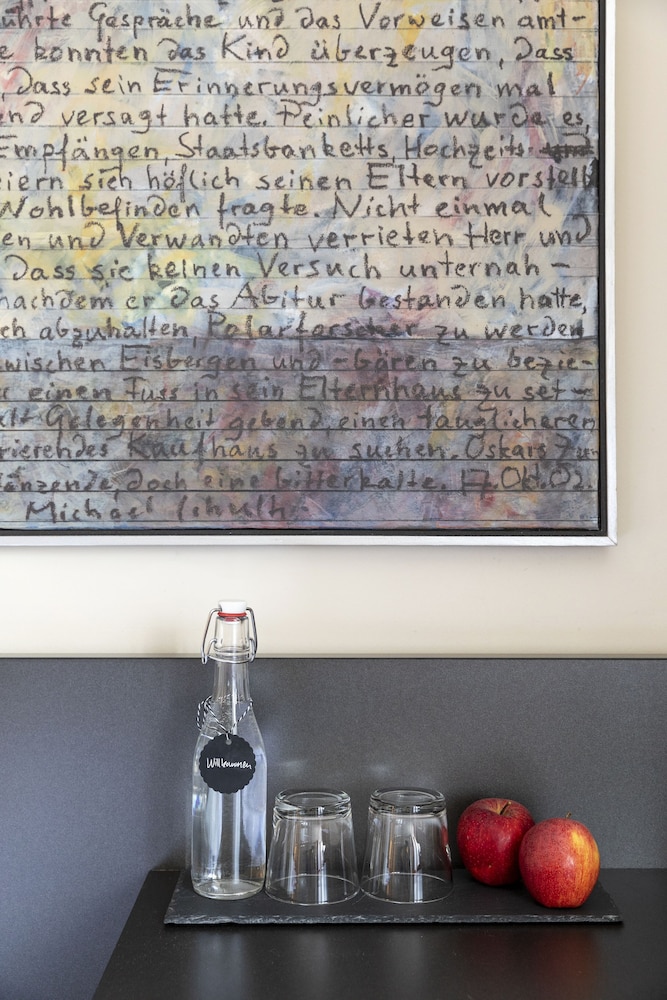 ührte Gespräche und das Vorweisen amt-
e konnten das Kind überzeugen, dass
, dass sein Erinnerungsvermögen mal
end versagt hatte. Peinlicher wurde es,
Empfängen, Staatsbanketts, Hochzeits-
eiern sich höflich seinen Eltern vorstell
Wohlbefinden fragte. Nicht einmal
en und Verwandten verrieten Herr und
dass sie keinen Versuch unternah-
nachdem er das Abitur bestanden hatte,
ch abzuhalten, Polarforscher zu werden
wischen Eisbergen und -bären zu bezie-
einen Fuss in sein Elternhaus zu set-
Gelegenheit gebend, einen tauglicheren
rierendes Kaufhaus zu suchen. Oskars Zun
änzende, doch eine bitterkalte. 17. Okt. 02.
Michael Schulh
Willkommen